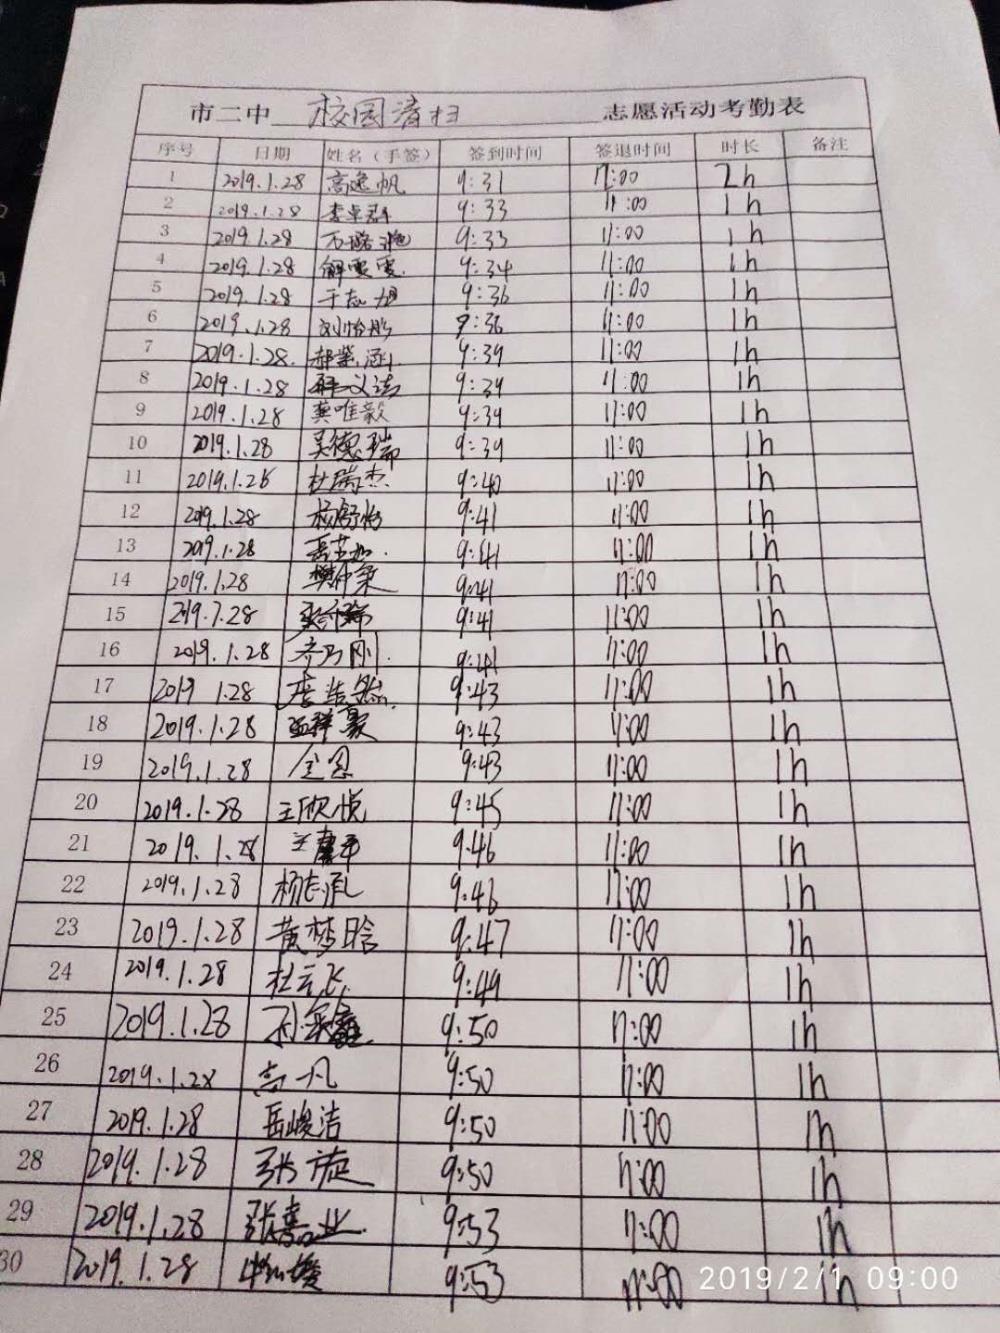 市二中 校园清扫 志愿活动考勤表
序号 日期 姓名（手签） 签到时间 签退时间 时长 备注
1 2019.1.28 高逸帆 9:31 11:00 2h
2 2019.1.28 李卓群 9:33 11:00 1h
3 2019.1.28 9:33 11:00 1h
4 2019.1.28 解雯雯 9:34 11:00 1h
5 2019.1.28 于志旭 9:36 11:00 1h
6 2019.1.28 刘怡彤 9:36 11:00 1h
7 2019.1.28 9:39 11:00 1h
8 2019.1.28 9:39 11:00 1h
9 2019.1.28 龚唯毅 9:39 11:00 1h
10 2019.1.28 吴德瑞 9:39 11:00 1h
11 2019.1.28 杜瑞杰 9:40 11:00 1h
12 2019.1.28 杨舒怡 9:41 11:00 1h
13 2019.1.28 9:41 11:00 1h
14 2019.1.28 9:41 11:00 1h
15 2019.1.28 9:41 11:00 1h
16 2019.1.28 齐乃刚 9:41 11:00 1h
17 2019 1.28 9:43 11:00 1h
18 2019.1.28 9:43 11:00 1h
19 2019.1.28 9:43 11:00 1h
20 2019.1.28 王欣悦 9:45 11:00 1h
21 2019.1.28 9:46 11:00 1h
22 2019.1.28 杨志承 9:46 11:00 1h
23 2019.1.28 黄梦晗 9:47 11:00 1h
24 2019.1.28 杜云飞 9:49 11:00 1h
25 2019.1.28 9:50 11:00 1h
26 2019.1.28 高凡 9:50 11:00 1h
27 2019.1.28 岳峻洁 9:50 11:00 1h
28 2019.1.28 张旋 9:50 11:00 1h
29 2019.1.28 张嘉业 9:53 11:00 1h
30 2019.1.28 9:53 11:00 1h
2019/2/1 09:00